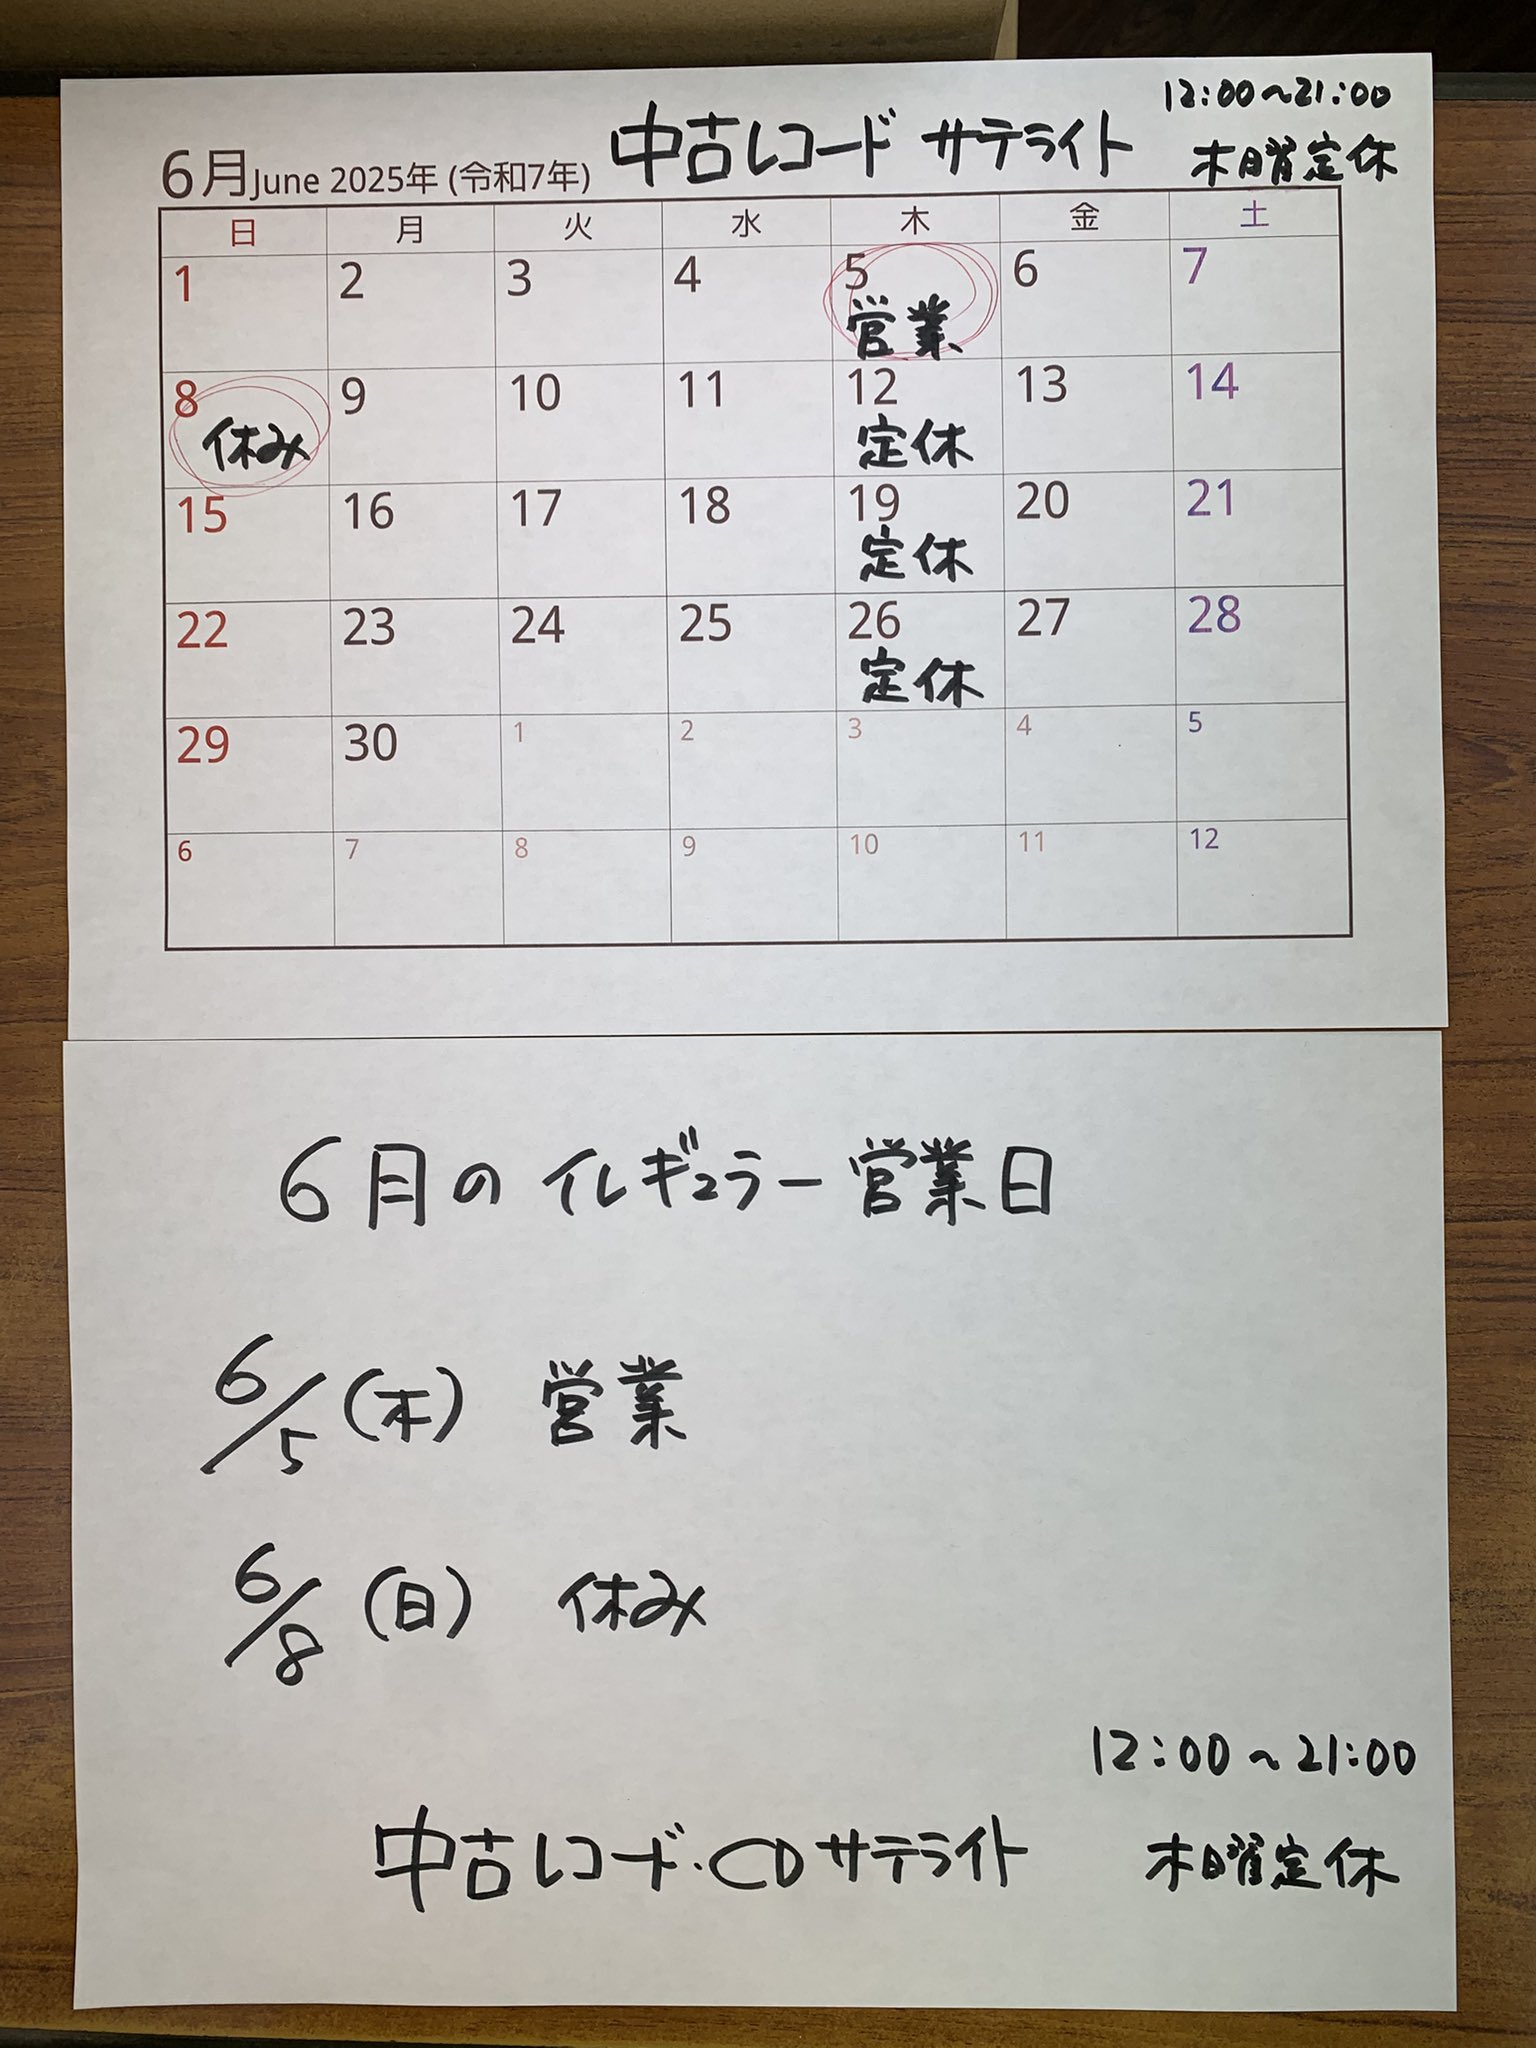 12:00〜21:00
中古レコード サテライト
木曜定休
6月 June 2025年 (令和7年)
日 月 火 水 木 金 土
1 2 3 4 5 6 7
営業
8 9 10 11 12 13 14
休み 定休
15 16 17 18 19 20 21
定休
22 23 24 25 26 27 28
定休
29 30 1 2 3 4 5
6 7 8 9 10 11 12
6月の イレギュラー営業日
6/5 (木) 営業
6/8 (日) 休み
12:00〜21:00
中古レコード・CDサテライト
木曜定休